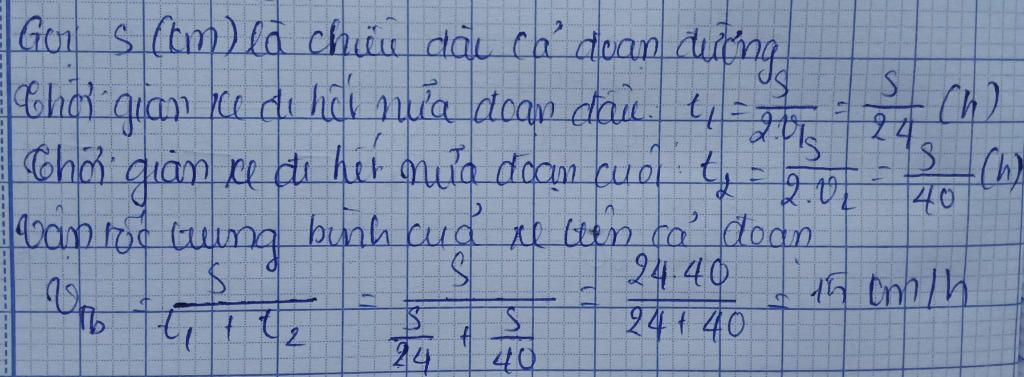 Gọi s (km) là chiều dài cả đoạn đường
Thời gian xe đi hết nửa đoạn đầu: t₁ = s/(2.v₁) = s/24 (h)
Thời gian xe đi hết nửa đoạn cuối: t₂ = s/(2.v₂) = s/40 (h)
Vận tốc trung bình của xe trên cả đoạn
v_tb = s/(t₁ + t₂) = s/(s/24 + s/40) = 24.40/(24 + 40) = 15 km/h